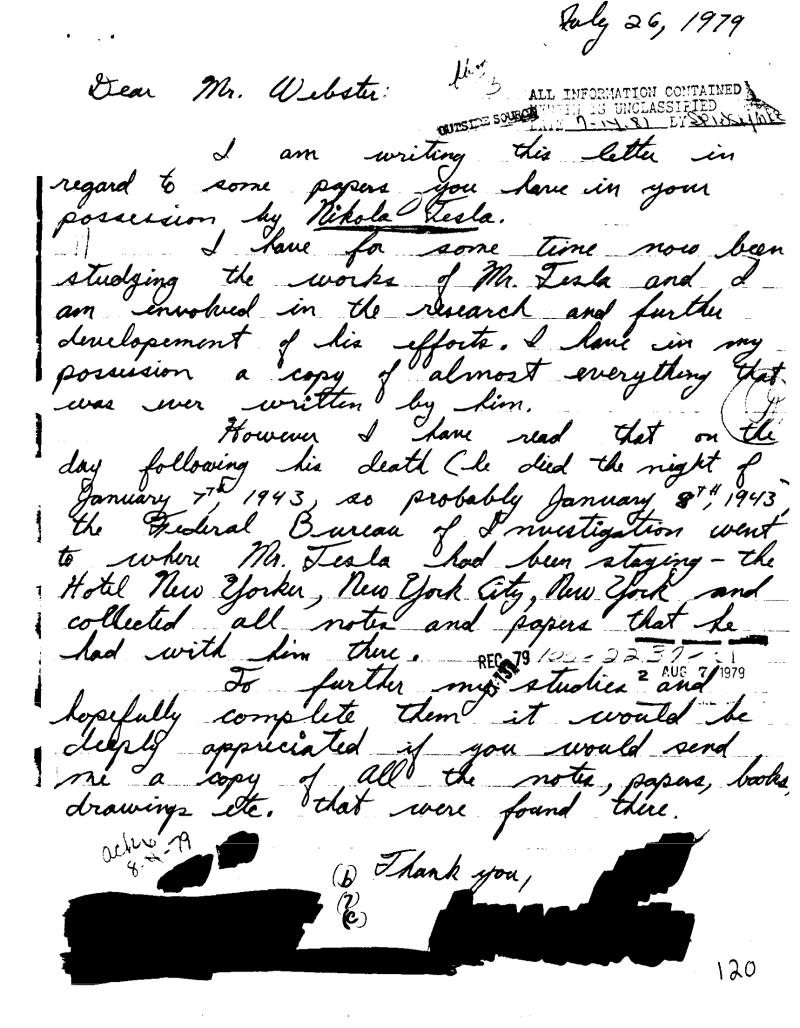 July 26, 1979
Dear Mr. Webster:
ALL INFORMATION CONTAINED
HEREIN IS UNCLASSIFIED
DATE 7-14-81 BY
OUTSIDE SOURCE
I am writing this letter in
regard to some papers you have in your
possession by Nikola Tesla.
I have for some time now been
studying the works of Mr. Tesla and I
am envolved in the research and further
developement of his efforts. I have in my
possession a copy of almost everything that
was ever written by him.
However I have read that on the
day following his death (he died the night of
January 7th, 1943, so probably January 8TH, 1943,
the Federal Bureau of Investigation went
to where Mr. Tesla had been staying - the
Hotel New Yorker, New York City, New York and
collected all notes and papers that he
had with him there.
REC 79
2 AUG 7 1979
To further my studies and
hopefully complete them it would be
deeply appreciated if you would send
me a copy of all the notes, papers, books,
drawings etc. that were found there.
Thank you,
(b)
(7)
(c)
120